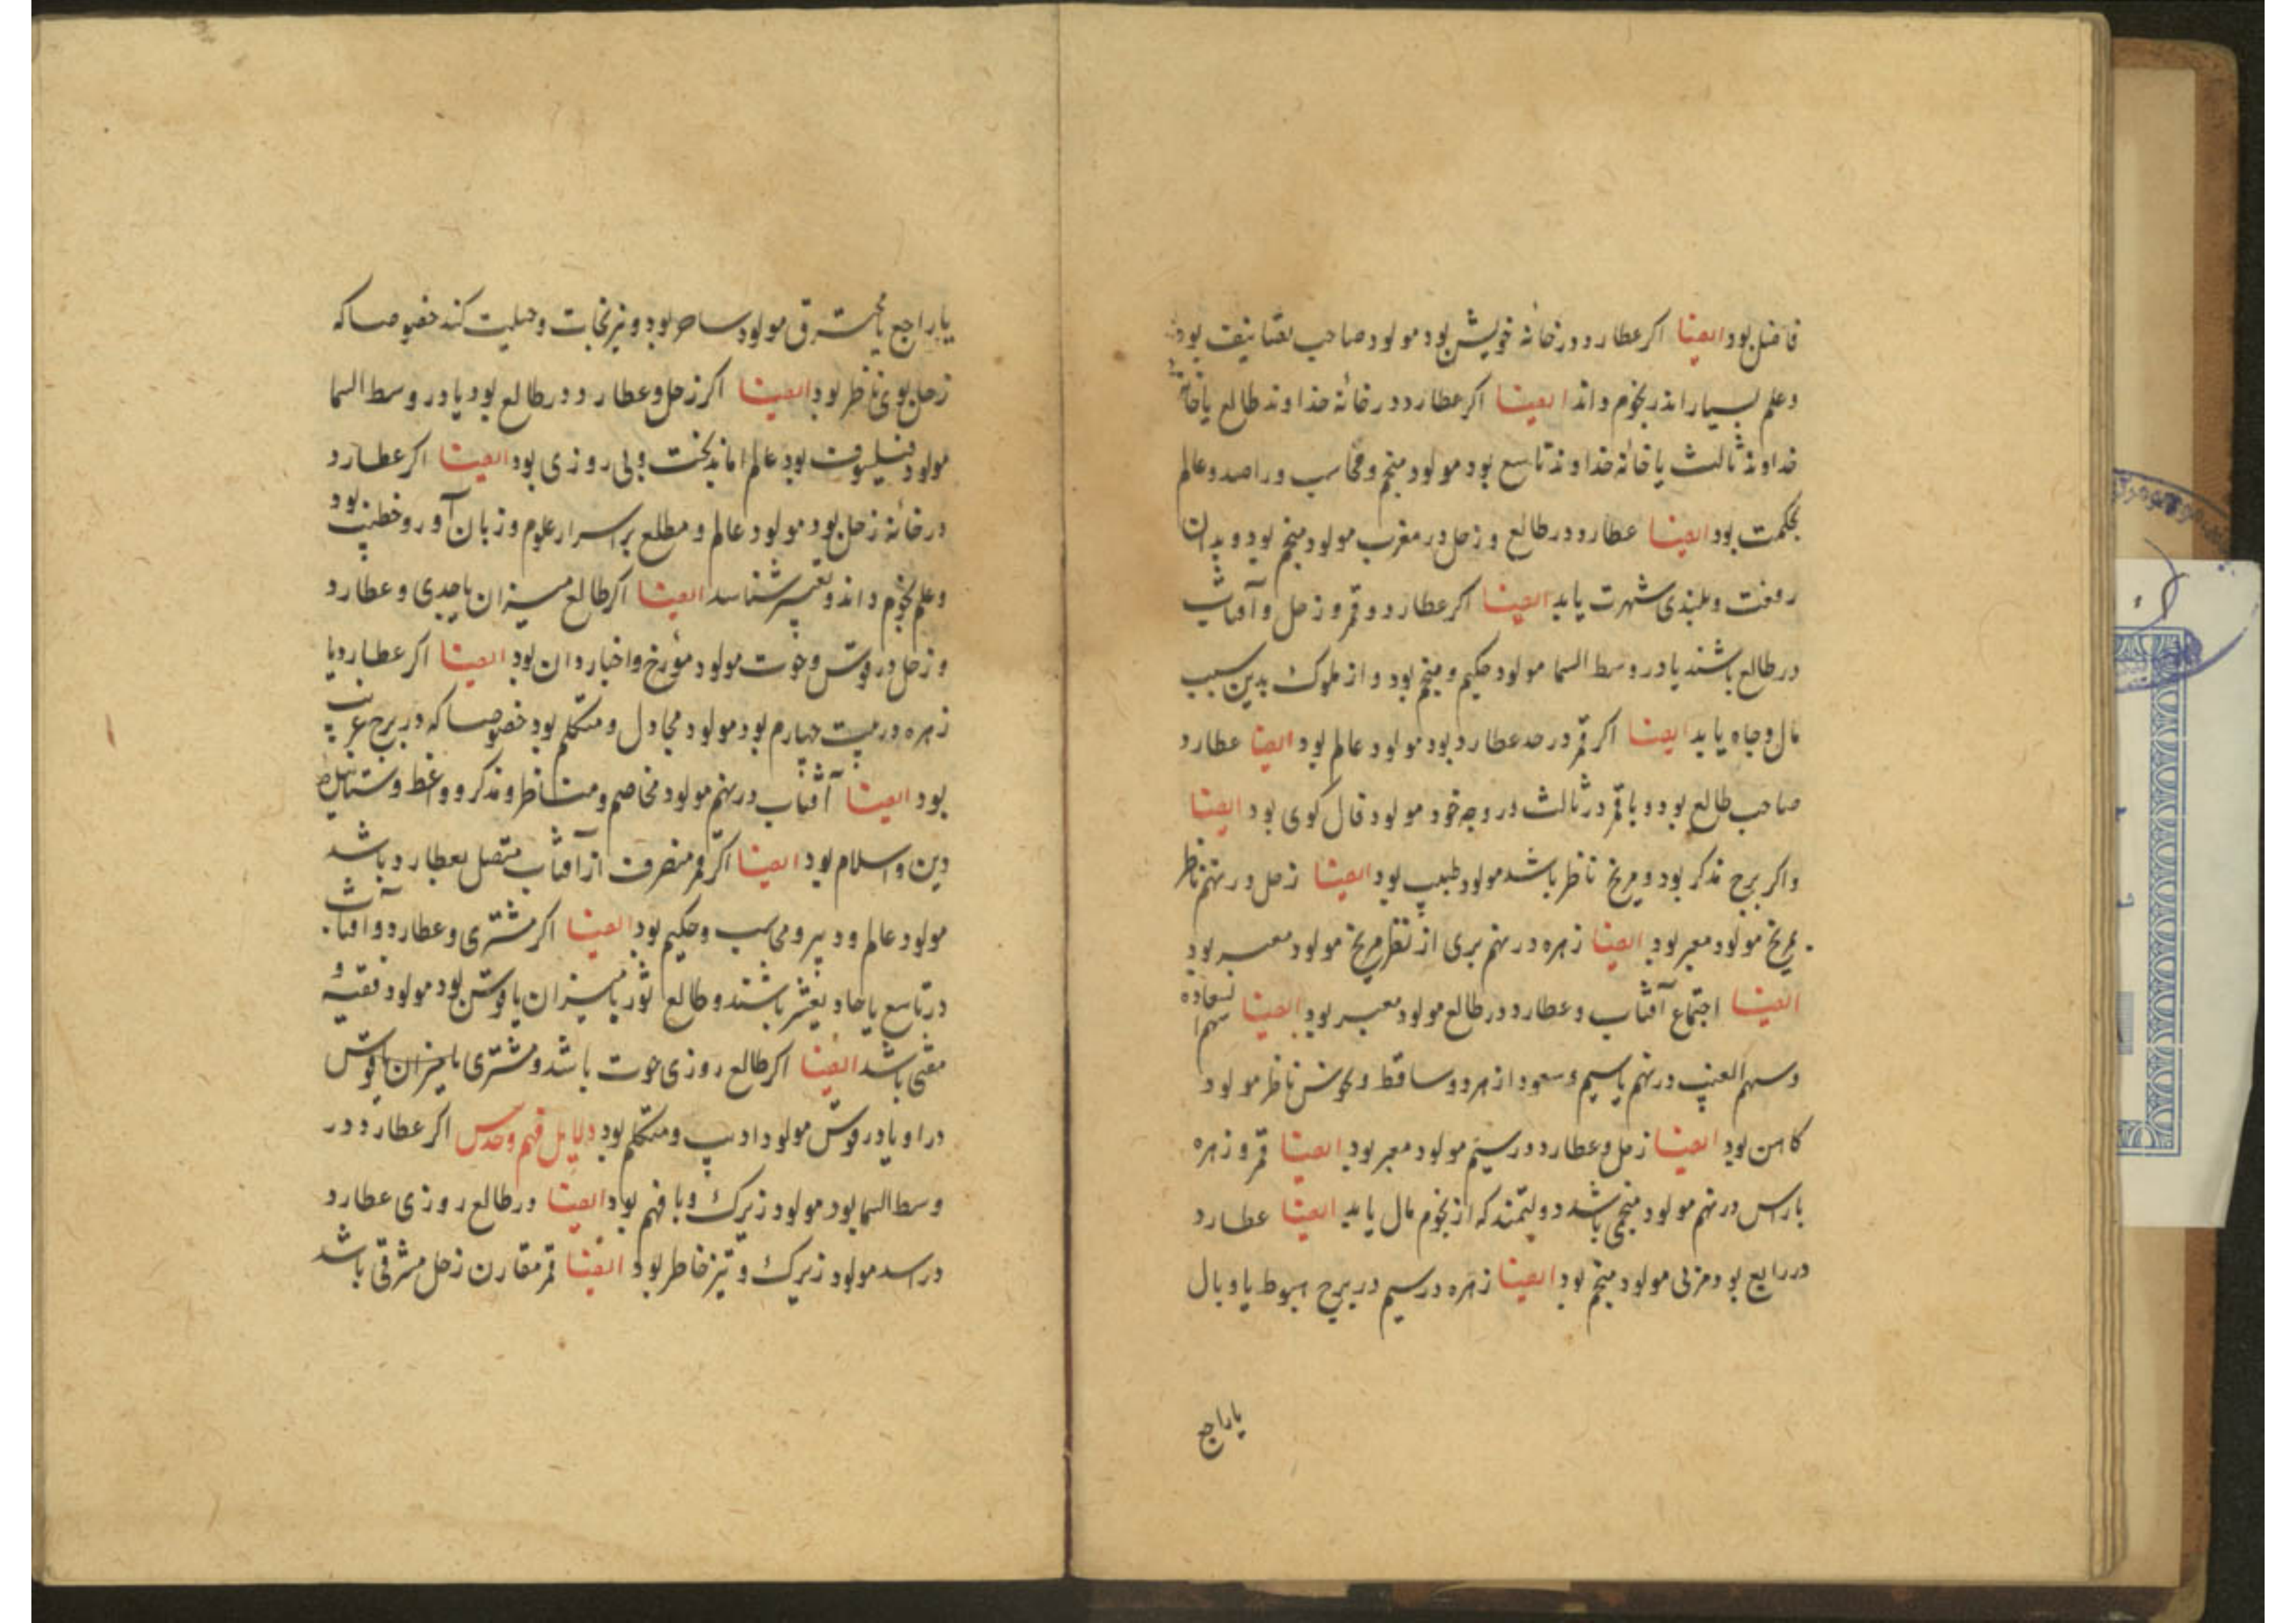 فاضل بود ایضا اکر عطارد در خانه خویش بود مولود صاحب تصانیف بود
و علم بسیار اندر نجوم داند ایضا اکر عطارد در خانه خداوند طالع یا خانه
خداوند ثالث یا خانه خداوند تاسع بود مولود منجم و محاسب و راصد و عالم
بحکمت بود ایضا عطارد در طالع و زحل در مغرب مولود منجم بود و بدان
رفعت و بلندی شهرت یابد ایضا اکر عطارد و قمر و زحل و آفتاب
در طالع باشند یا در وسط السما مولود حکیم و منجم بود و از ملوک بدین سبب
مال و جاه یابد ایضا اکر قمر در حد عطارد بود مولود عالم بود ایضا عطارد
صاحب طالع بود و با قمر در ثالث در وجه خود مولود فال کوی بود ایضا
واکر برج مذکر بود و مریخ ناظر باشد مولود طبیب بود ایضا زحل در نهم ناظر
بمریخ مولود معبر بود ایضا زهره در نهم بری از نظر مریخ مولود معبر بود
ایضا اجتماع آفتاب و عطارد در طالع مولود معبر بود ایضا سهم السعاده
و سهم الغیب در نهم یا سیم و سعود از هر دو ساقط و نحوس ناظر مولود
کاهن بود ایضا زحل و عطارد در سیم مولود معبر بود ایضا قمر و زهره
با راس در نهم مولود منجمی باشد دولتمند که از نجوم مال یابد ایضا عطارد
در رابع بود مولود منجم بود ایضا زهره در سیم در برج هبوط یا وبال
یا راجع
یا راجع یا محترق مولود ساحر بود و نیرنجات و حیلت کند خصوصا که
زحل بوی ناظر بود ایضا اکر زحل و عطارد در طالع بود یا در وسط السما
مولود فیلسوف بود عالم اما بدبخت و بی روزی بود ایضا اکر عطارد
در خانه زحل بود مولود عالم و مطلع بر اسرار علوم و زبان آور و خطیب بود
و علم نجوم داند و تفسیر شناسد ایضا اکر طالع میزان یا جدی و عطارد
و زحل در قوس و حوت مولود مورخ و اخباردان بود ایضا اکر عطارد یا
زهره در بیت چهارم بود مولود مجادل و متکلم بود خصوصا که در برج غریب
بود ایضا آفتاب در نهم مولود مخاصم و مناظر و مذکر و واعظ و
دین و اسلام بود ایضا اکر قمر منصرف از آفتاب متصل بعطارد باشد
مولود عالم و دبیر و محاسب و حکیم بود ایضا اکر مشتری و عطارد و آفتاب
در تاسع یا حادیعشر باشند و طالع ثور یا میزان یا قوس بود مولود فقیه و
مفتی باشد ایضا اکر طالع روزی حوت باشد و مشتری یا میزان یا قوس
در او یا در قوس مولود ادیب و متکلم بود دلایل فهم و حدس اکر عطارد در
وسط السما بود مولود زیرک و با فهم بود ایضا در طالع روزی عطارد
در اسد مولود زیرک و تیز خاطر بود ایضا قمر مقارن زحل مشرقی باشد